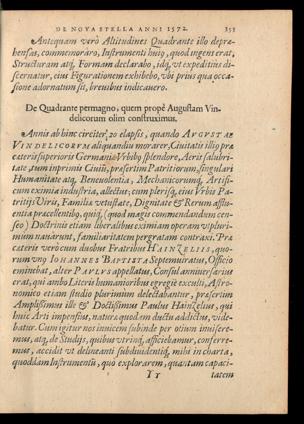 DE NOVA STELLA ANNI 1572. 351
Antequam verò Altitudines Quadrante illo depræ-
hensas, commemoràro, Instrumenti huiꝰ, quod ingens erat,
Structuram atq́; Formam declarabo, idq́; vt expeditius di-
scernatur, eius Figurationem exhibebo, vbi prius qua occa-
sione adornatum sit, breuibus indicauero.
De Quadrante permagno, quem propè Augustam Vin-
delicorum olim construximus.
Annis ab hinc circiter 20 elapsis, quando AVGVSTÆ
VINDELICORVM aliquandiu morarer, Ciuitatis illiꝰ præ
cæteris superioris Germaniæ Vrbibꝰ splendore, Aeris salubri-
tate, tum inprimis Ciuiū, præsertim Patritiorum, singulari
Humanitate atq́; Beneuolentia, Mechanicorumq́; Artifi-
cum eximia industria, allectus; cum plerisq́; eius Vrbis Pa-
tritijs Viris, Familiæ vetustate, Dignitate & Rerum afflu-
entia præcellentibꝰ, quiq́; (quod magis commendandum cen-
seo) Doctrinis etiam liberalibus eximiam operam vt pluri-
mum nauârunt, familiaritatem pergratam contraxi. Præ
cæteris verò cum duobus Fratribus HAINZELIIS, quo-
rum vnꝰ IOHANNES BAPTISTA Septemuiratus, Officio
eminebat, alter PAVLVS appellatus, Consul anniuersarius
erat, qui ambo Literis humanioribus egregiè exculti, Astro-
nomico etiam studio plurimum delectabantur, præsertim
Amplissimus ille & Doctissimus Paulus Hainzelius, qui
huic Arti impensius, naturæ quodam ductu addictus, vide-
batur. Cum igitur nos inuicem subinde per otium inuisere-
mus, atq́; de Studijs, quibus vtrinq́; afficiebamur, conferre-
mus, accidit vt delineanti subduidentiq́; mihi in charta,
quoddam Instrumentū, quò explorarem, quantam capaci-
Yy tatem